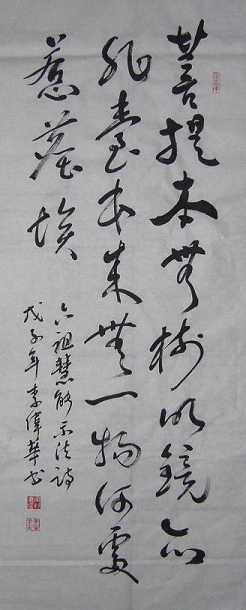 菩提本無樹明鏡亦
非臺本來無一物何處
惹塵埃
六祖慧能示法詩
戊子年李偉華書